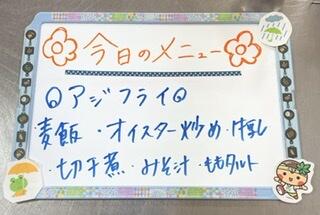 今日のメニュー
◎アジフライ◎
麦飯・オイスター炒め・牛乳
・切干煮・みそ汁・ももタルト